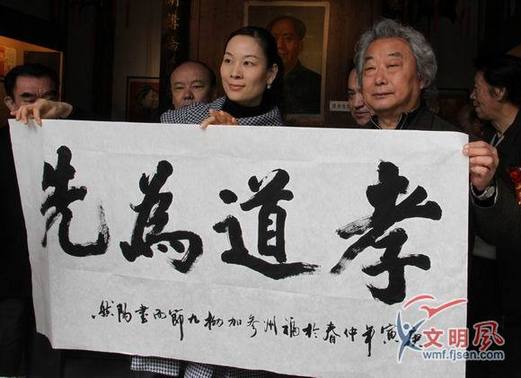 孝道為先
庚寅年仲春於福州参加拗九節而書
文明风
wmf.fjsen.com